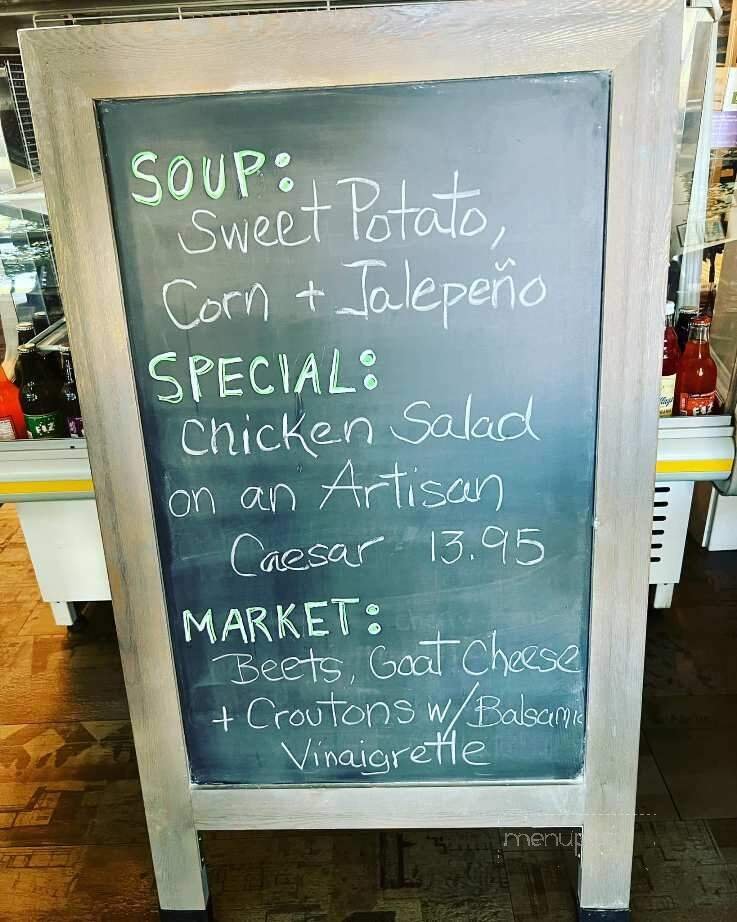 SOUP:
Sweet Potato,
Corn + Jalepeño
SPECIAL:
Chicken Salad
on an Artisan
Caesar 13.95
MARKET:
Beets, Goat Cheese
+ Croutons w/ Balsamic
Vinaigrette
FIZ
menup